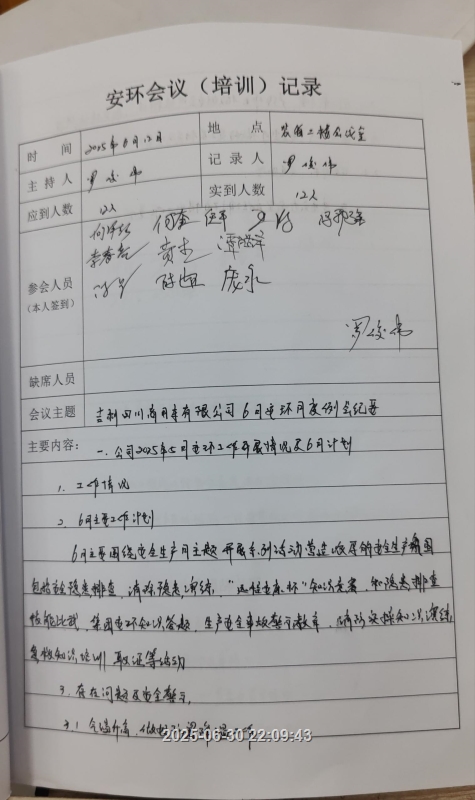 安环会议（培训）记录
时 间 2025年6月12日 地 点
主持人 罗俊伟 记录人 罗俊伟
应到人数 12人 实到人数 12人
参会人员
（本人签到）
何奎
黄杰
庞永
罗俊伟
缺席人员
会议主题 吉利四川商用车有限公司6月安环月度例会纪要
主要内容： 一、公司2025年5月安环工作开展情况及6月计划
1、工作情况
2、6月主要工作计划
6月主要围绕安全生产月主题开展系列活动营造浓厚的安全生产氛围
包括安全隐患排查、消除隐患演练、“ 杯”知识竞赛、和隐患排查
技能比武、集团安环知识答题、生产安全事故警示教育、消防 知识演练、
急救知识培训取证等活动
3、存在问题及安全警示
3.1 气温升高，做好防暑降温工作
2025-06-30 22:09:43